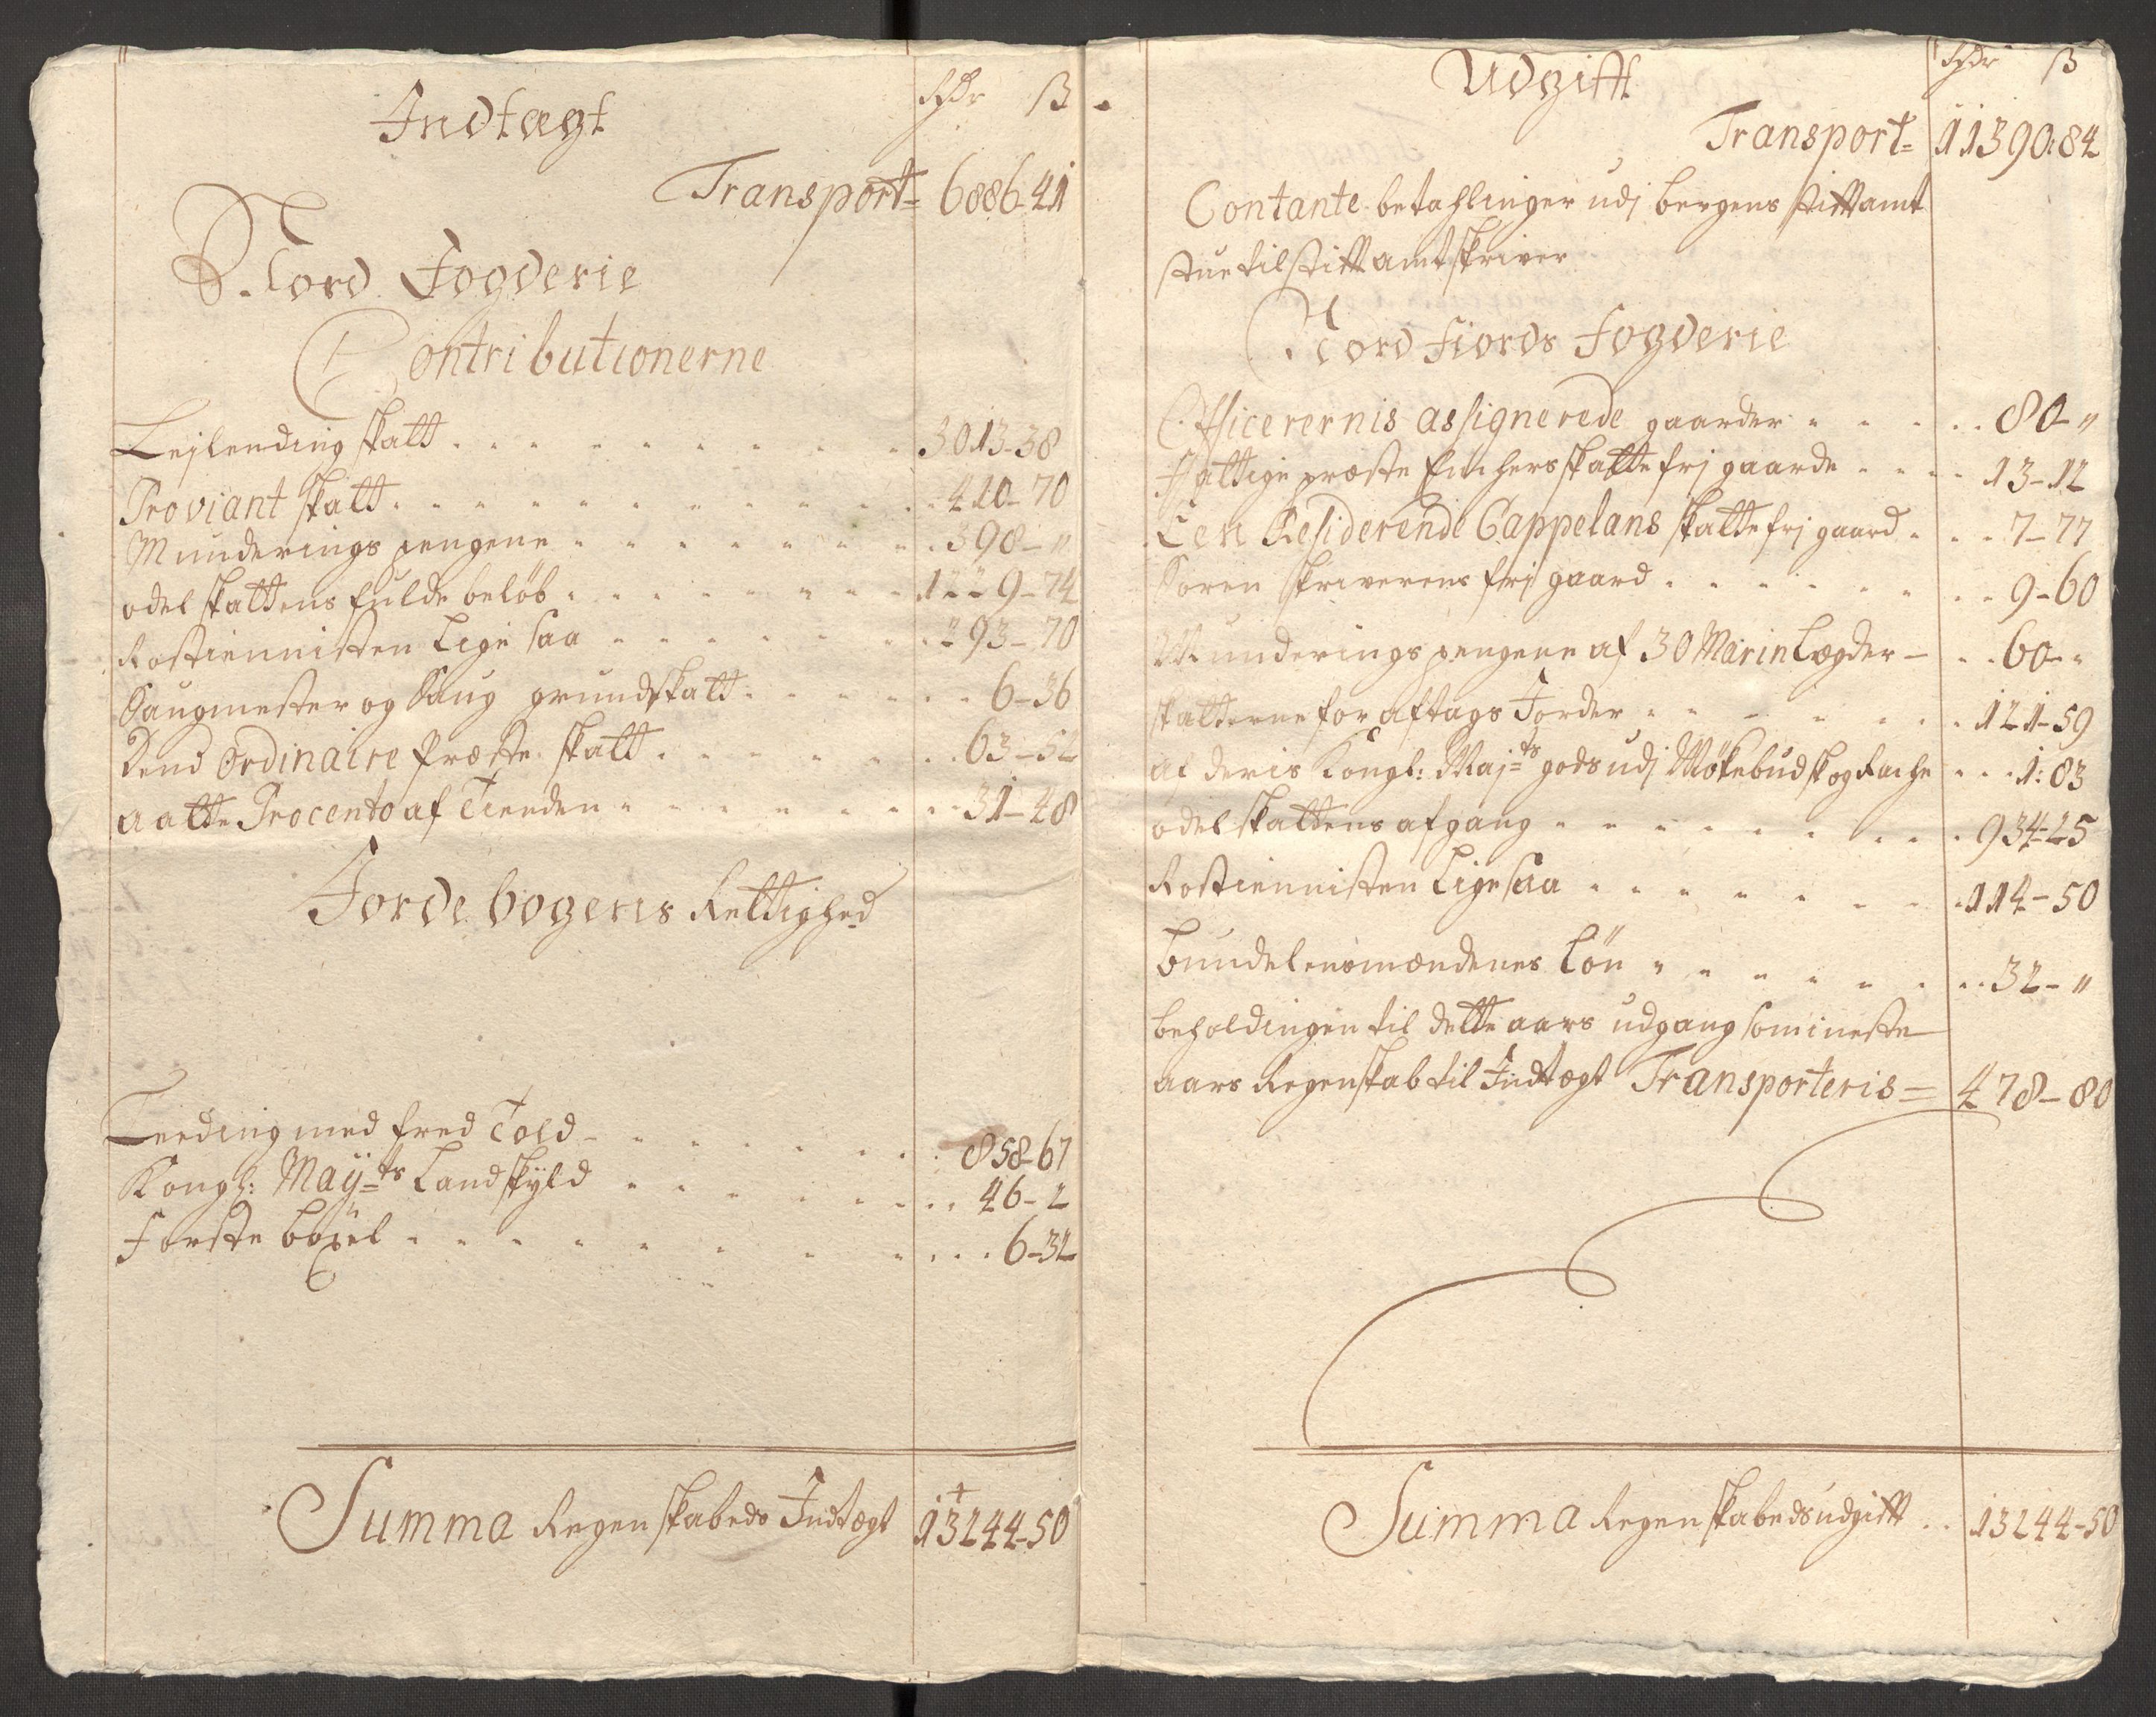 Indtægt
Rdr ß
Transport= 6886-41
Nord Fogderie
Contributionerne
Lejlending skatt 3013-38
Proviant skatt 410-70
Munderings pengene 398-"
odel skattens fulde beløb 1229-74
Rostiennisten Lige saa 293-70
Saugmester og Saug grundskatt 6-36
Dend Ordinaire Præste skatt 63-52
aatte Procento af Tienden 31-48
Jordebogens Rettighed
Leeding med fred Told 858-67
Kongl: May=ts Landskyld 46-2
Første böxel 6-32
Summa Regenskabeds Indtægt 13244-50
Udgifft
Rdr ß
Transport= 11390:84
Contante betahlinger udj bergens stifftamt
stue til stifftamtskriver
Nord Fiords Fogderie
Officerernis assignerede gaarder 80-"
Fattige præste Enchers skattefrj gaarde 13-12
Een Residerende Cappelans skattefrj gaard 7-77
Soren skriverens frj gaard 9-60
Munderings pengene af 30 Marin Lægder 60-"
skatterne for aftags Jorder 121-59
af deris Kongl: Maj=ts gods udj og 1:83
odel skattens afgang 934-25
Rostiennisten Ligesaa 114-50
bundelensmændenes Lön 32-"
beholdingen til dette aars udgang som i neste
aars Regenskab til Indtægt Transporteris= 478-80
Summa Regenskabeds udgifft 13244-50